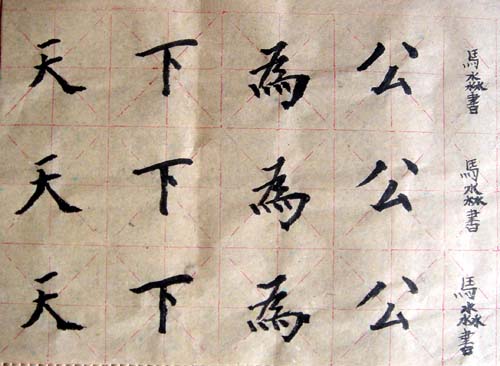 天下為公
馬淼書
天下為公
馬淼書
天下為公
馬淼書